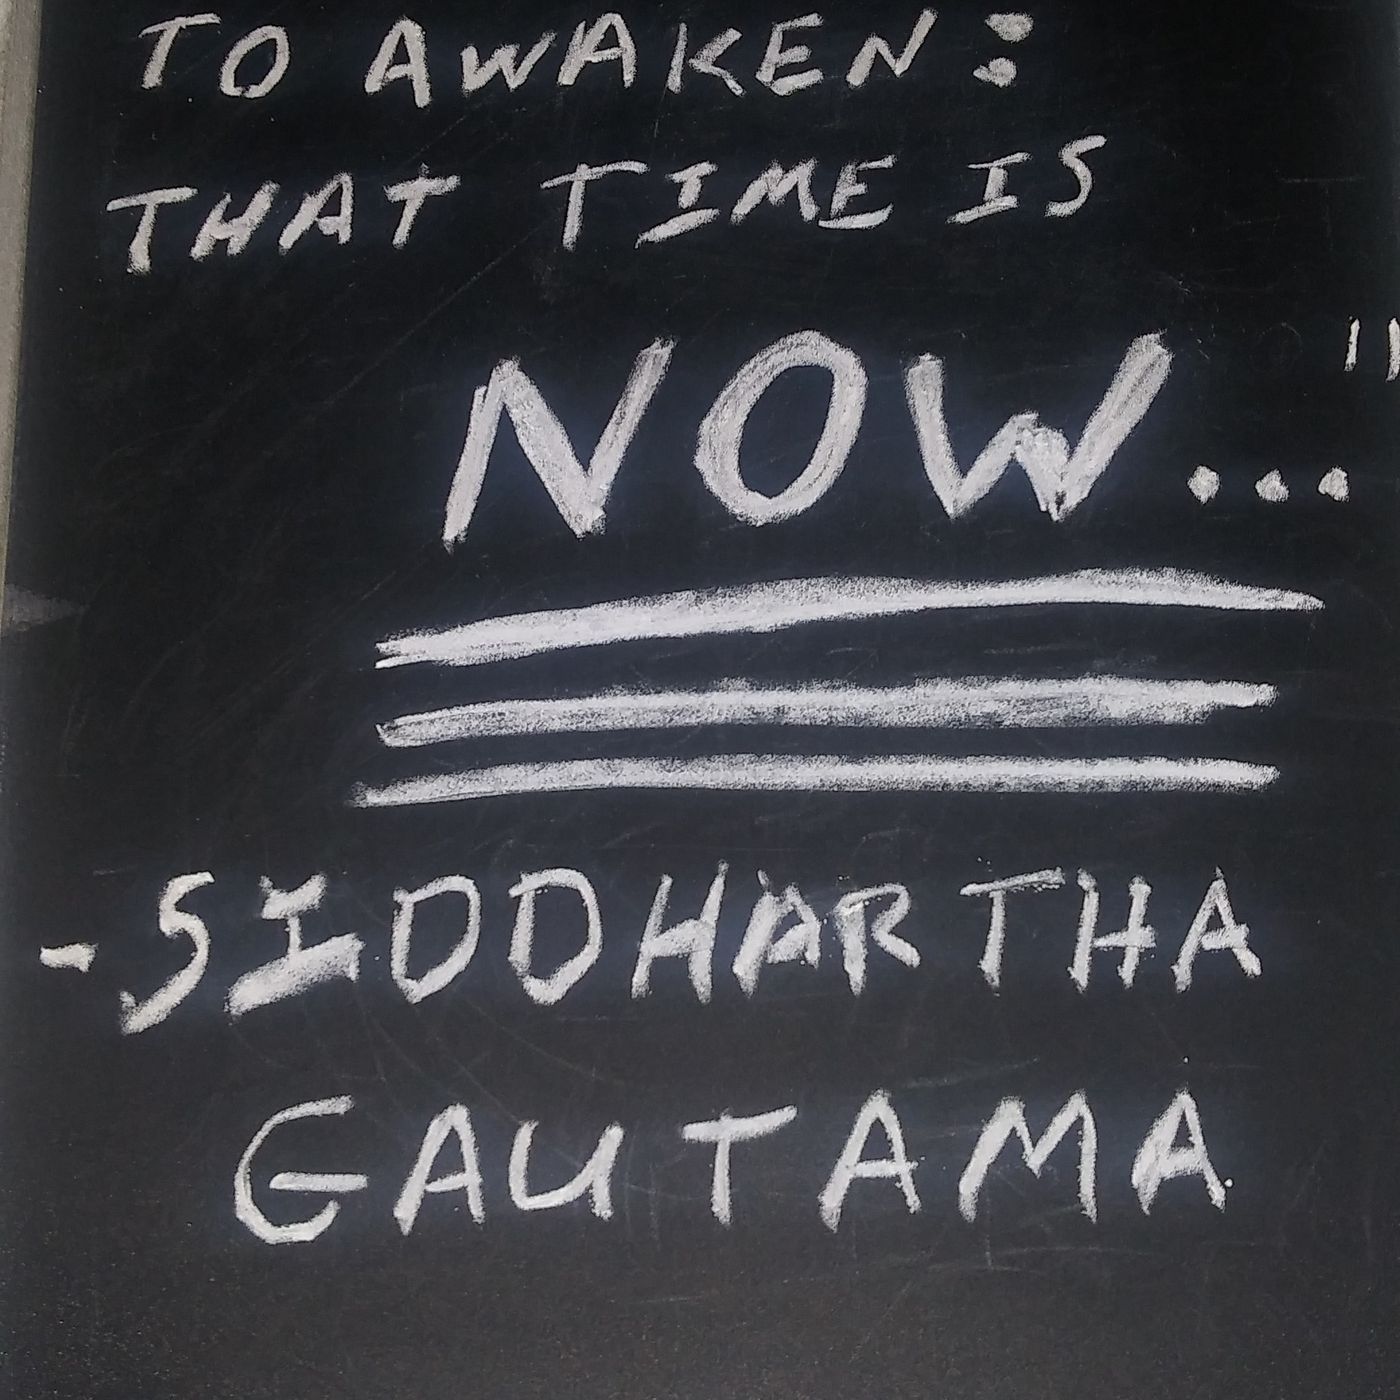 TO AWAKEN:
THAT TIME IS
NOW..."
-SIDDHARTHA
GAUTAMA